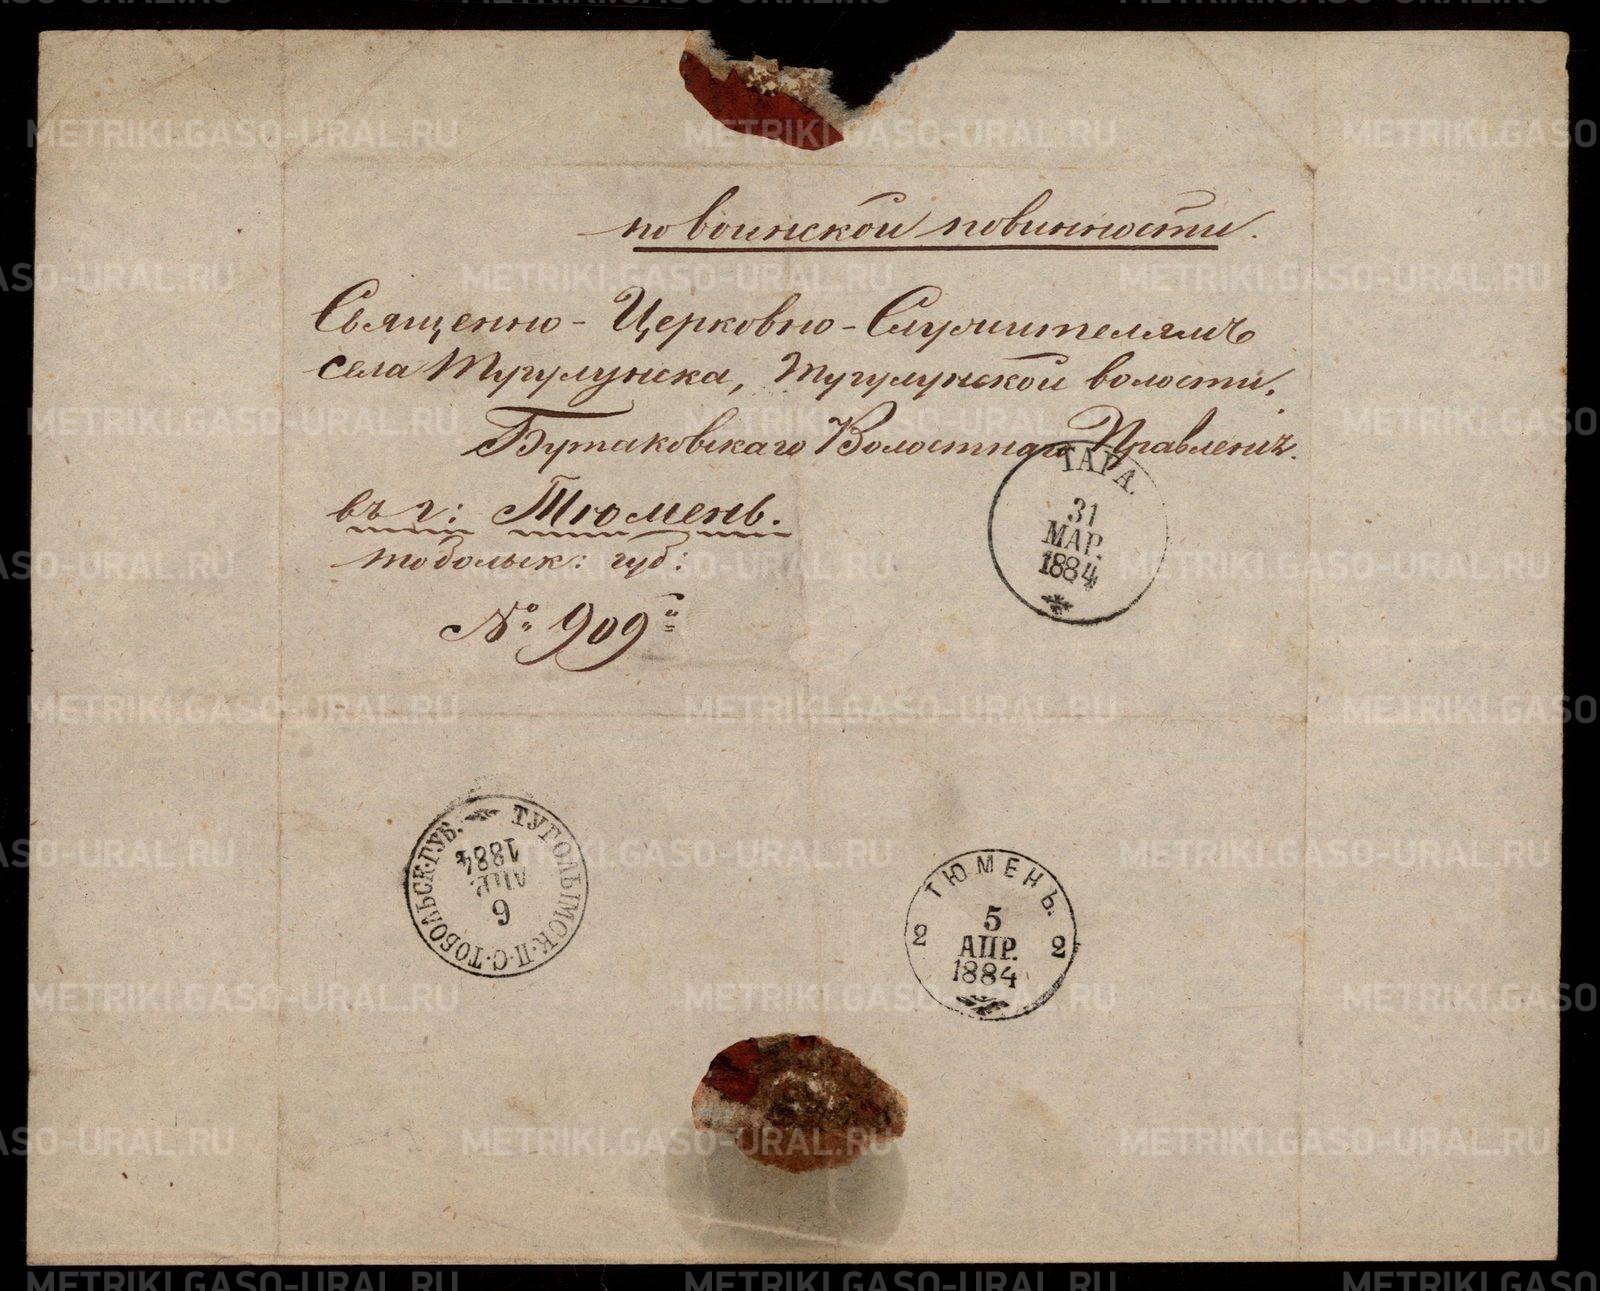 по воинской повинности.
Священно-Церковно-Служителямъ
села Тугулунска, Тугулунской волости.
Бутаковскаго Волостнаго Правленія.
въ г: Тюмень.
тобольск: губ:
№ 909
ТАРА.
31
МАР.
1884
ТУГОЛЫМСК.П.С.ТОБОЛЬСК.ГУБ.
6
АПР.
1884
ТЮМЕНЬ.
2 5 2
АПР.
1884
METRIKI.GASO-URAL.RU